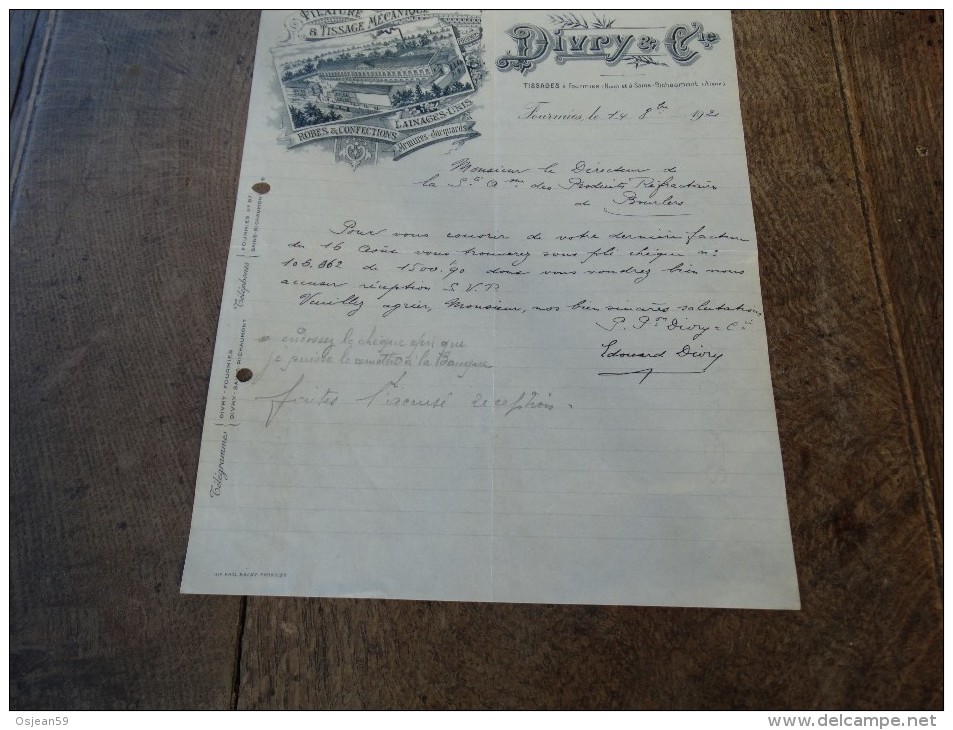 FILATURE
& TISSAGE MÉCANIQUE
LAINAGES UNIS
ROBES & CONFECTIONS
Armures Jacquards
Divry & Cie
TISSAGES à Fourmies (Nord) et à Sains-Richaumont (Aisne)
Fourmies, le 14 8bre 192
Monsieur le Directeur de
la Sté Ame des Produits Réfractaires
de Bourlers
Pour vous couvrir de votre dernière facture
du 16 Août vous trouverez sous pli chèque no
106.862 de 1500.90 dont vous voudrez bien nous
accuser réception S.V.P.
Veuillez agréer, Monsieur, nos bien sincères salutations,
P. Pon Divry & Cie
Edouard Divry
endossez le chèque afin que
je puisse le remettre à la Banque
faites l'accusé réception.
Télégrammes DIVRY-FOURMIES
DIVRY-SAINS-RICHAUMONT
Téléphones FOURMIES No 87
SAINS-RICHAUMONT
Osjean59
www.delcampe.net